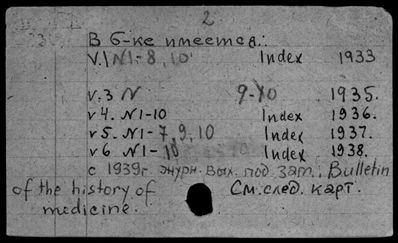 2
В б-ке имеется:
v.1 N1-8, 10 Index 1933
v.3 N 9-10 1935.
v4. N1-10 Index 1936.
v5. N1-7, 9, 10 Index 1937.
v6 N1-10 Index 1938.
с 1939г. журн. вых. под заг.: Bulletin
of the history of См. след. карт.
medicine.